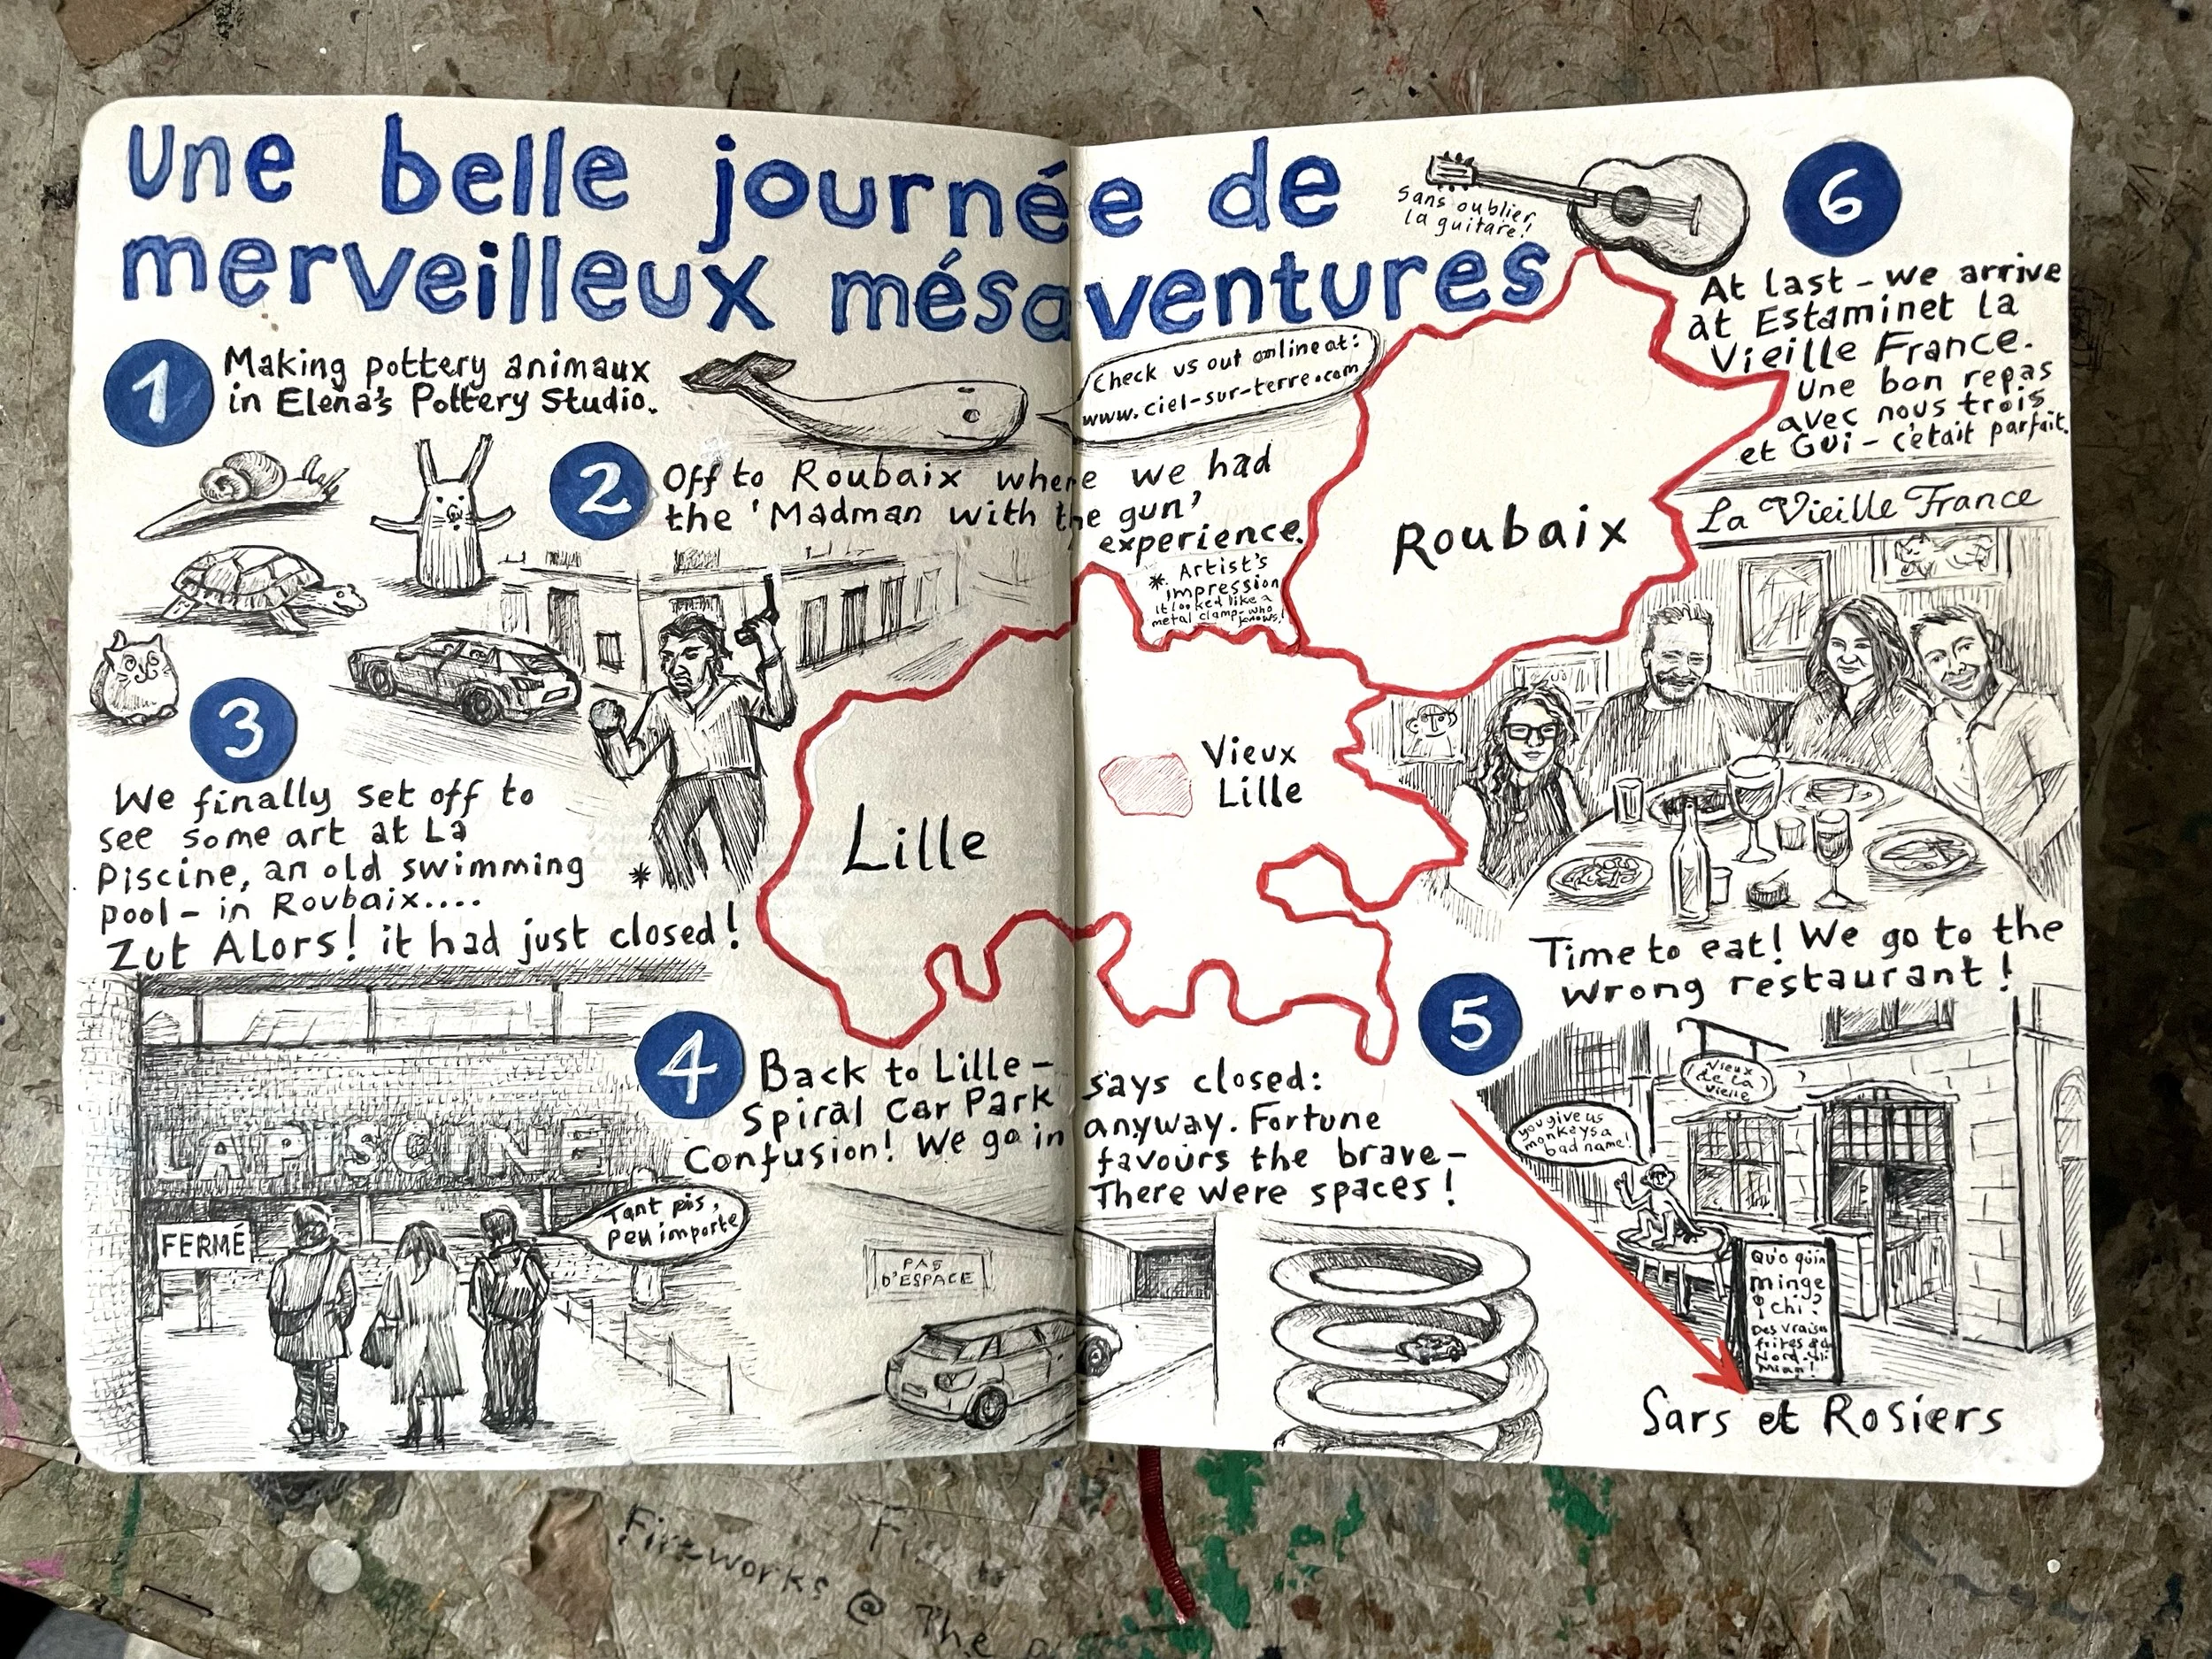 Une belle journée de
merveilleux mésaventures
sans oublier
la guitare!
1
Making pottery animaux
in Elena's Pottery Studio.
Check us out online at:
www.ciel-sur-terre.com
2
Off to Roubaix where we had
the 'Madman with the gun'
experience.
* Artist's
impression
it looked like a
metal clamp-who
knows!
*
3
We finally set off to
see some art at La
Piscine, an old swimming
pool - in Roubaix....
Zut Alors! it had just closed!
LA PISCINE
FERMÉ
Tant pis,
peu importe
Lille
Vieux
Lille
Roubaix
4
Back to Lille - says closed:
Spiral Car Park anyway. Fortune
Confusion! We go in favours the brave -
There were spaces!
PAS
D'ESPACE
5
Time to eat! We go to the
wrong restaurant!
Vieux
de la
vielle
you give us
monkeys a
bad name!
Quo qu'in
minge
chi?
Des vraies
frites
Nord
Miam!
Sars et Rosiers
6
At last - we arrive
at Estaminet la
Vieille France.
Une bon repas
avec nous trois
et Gui - c'était parfait.
La Vieille France
Fireworks @ The